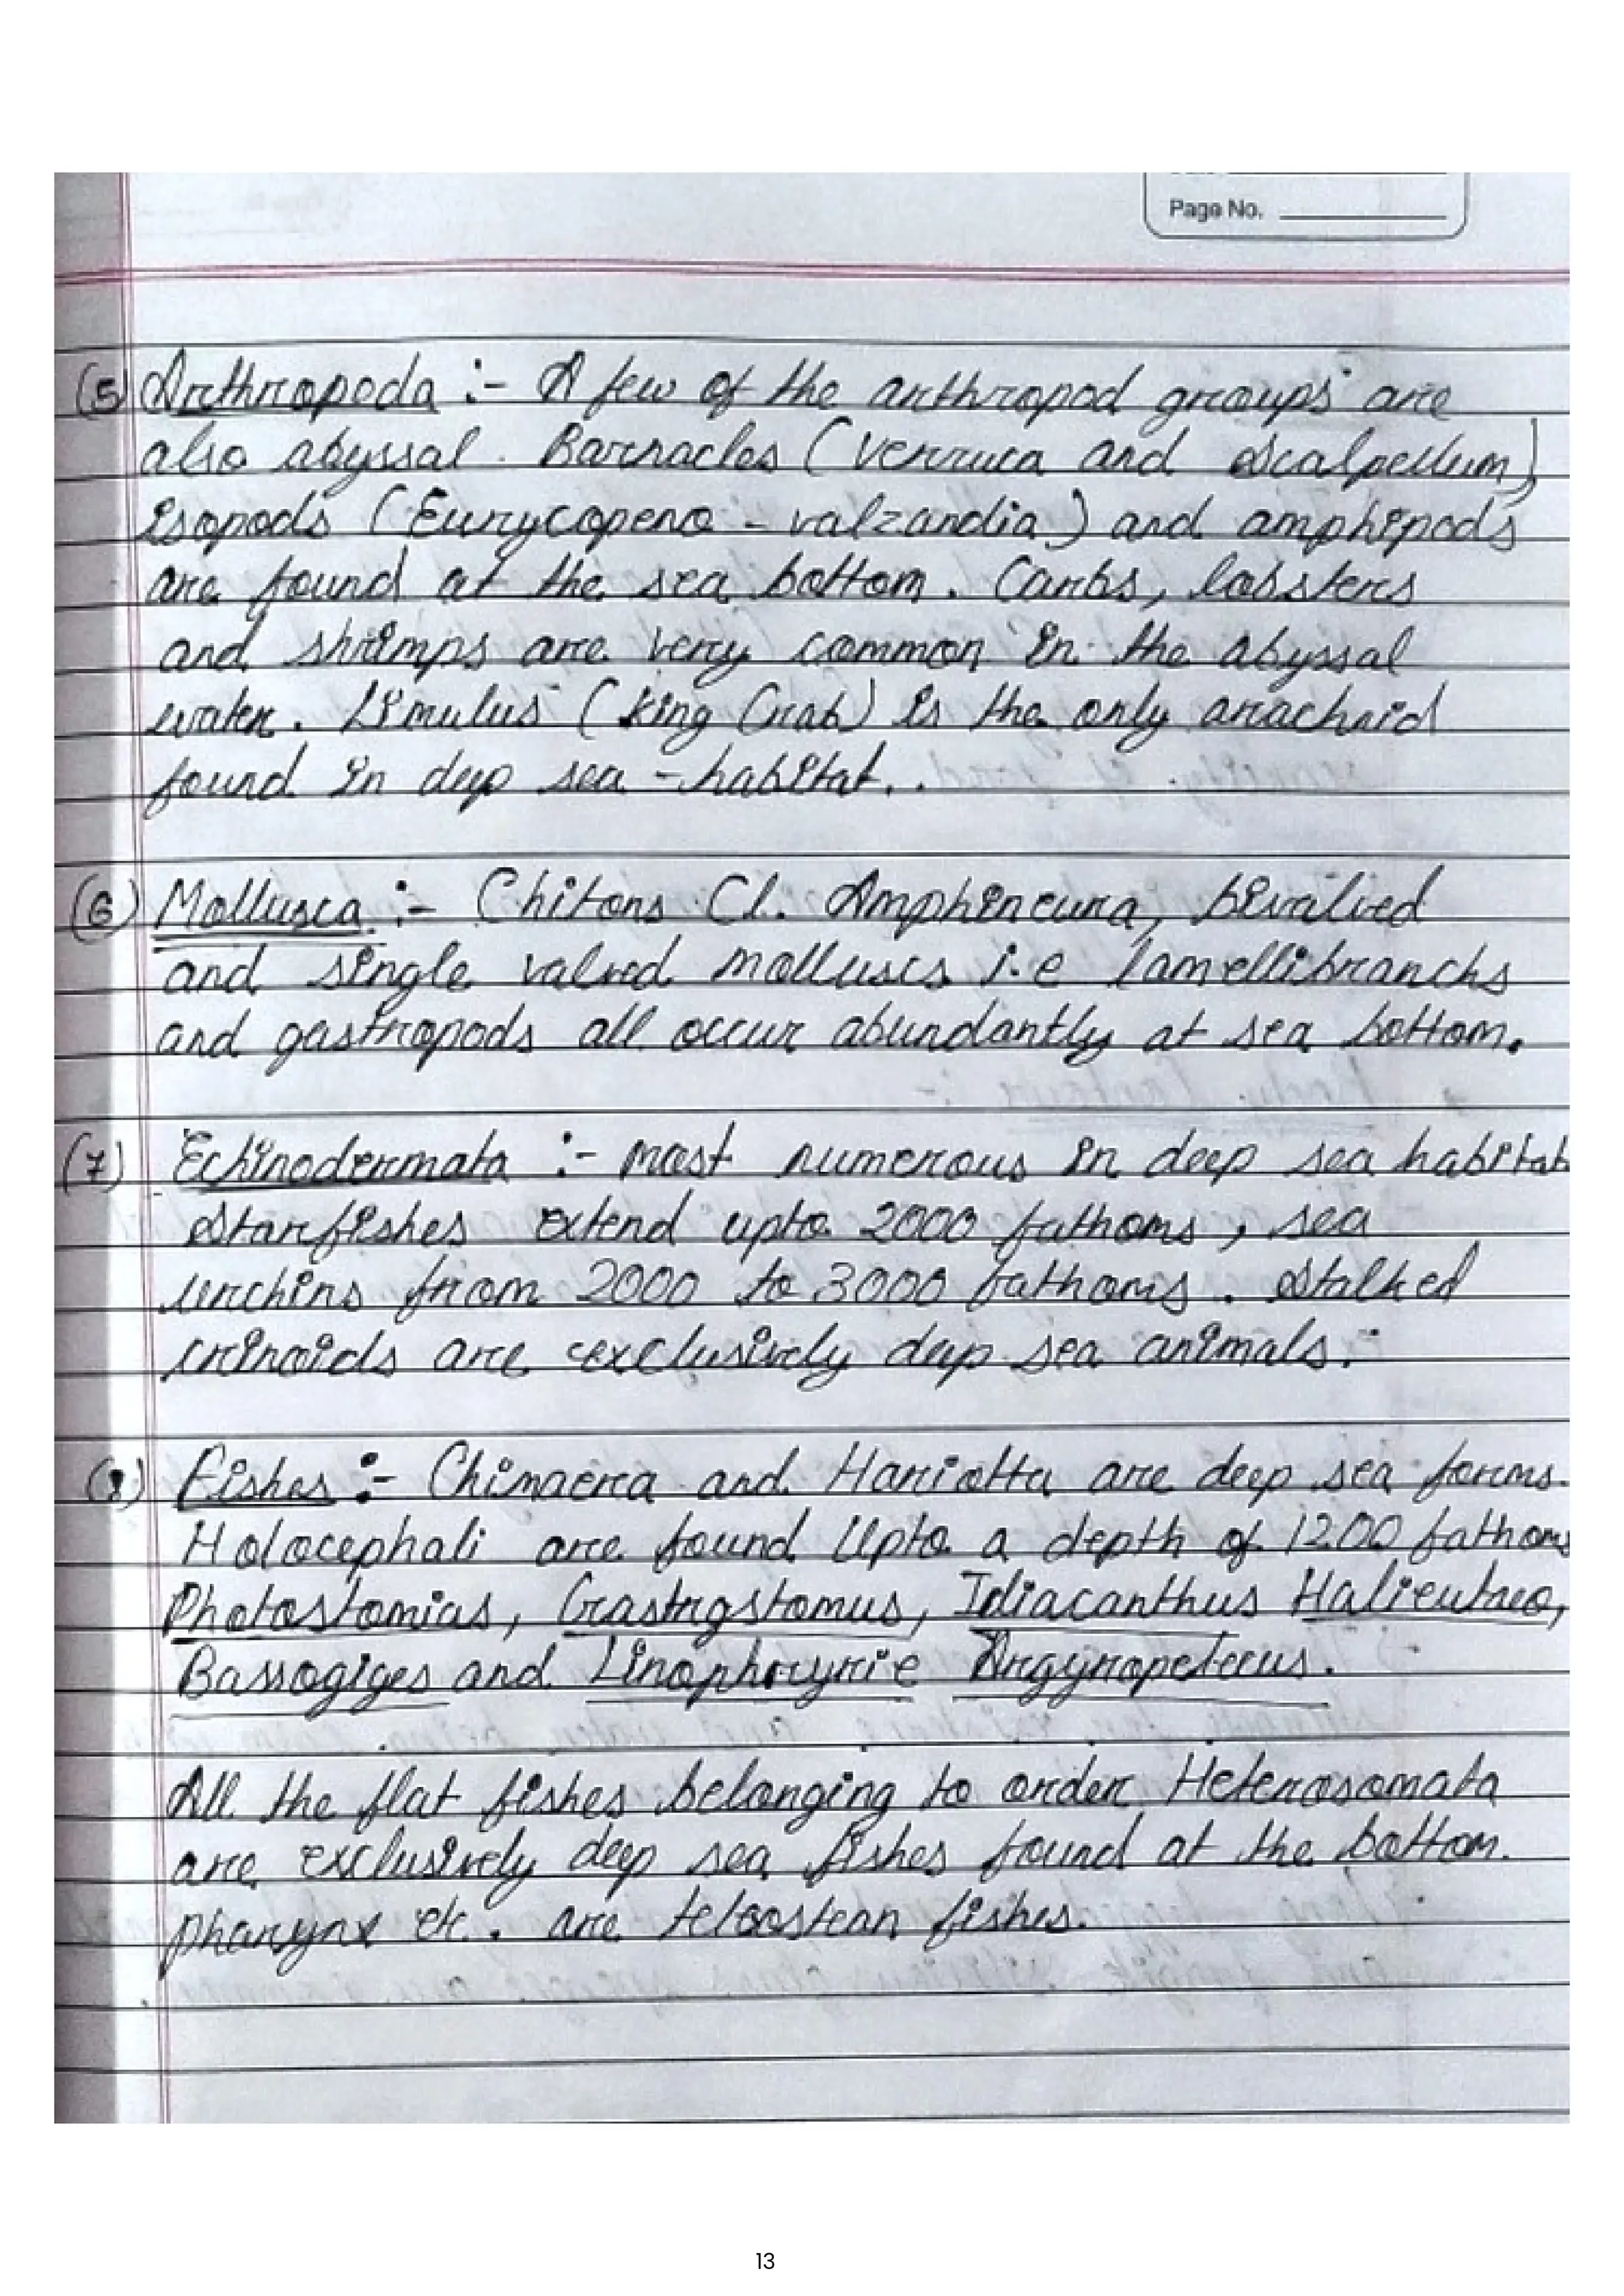 Page No.
(5) Arthropoda :- A few of the arthropod groups are
also abyssal. Barnacles (Verruca and Scalpellum)
isopods (Eurycopeno - valzandia) and amphipods
are found at the sea bottom. Carbs, lobsters
and shrimps are very common in the abyssal
water. Limulus (king Crab) is the only arachnid
found in deep sea - habitat.
(6) Mollusca :- Chitons Cl. Amphineura, bivalved
and single valved molluscs i.e lamellibranchs
and gastropods all occur abundantly at sea bottom.
(7) Echinodermata :- most numerous in deep sea habitat
Starfishes extend upto 2000 fathoms, sea
urchins from 2000 to 3000 fathoms. Stalked
crinoids are exclusively deep sea animals.
(8) Fishes :- Chimaera and Hariotta are deep sea forms.
Holocephali are found Upto a depth of 1200 fathoms
Photostomias, Grastrgstomus, Idiacanthus Halieutaeo,
Bassogiges and Linophrynie Argyropelecus.
All the flat fishes belonging to order Heterosomata
are exclusively deep sea fishes found at the bottom.
pharynx etc. are teleostean fishes.
13